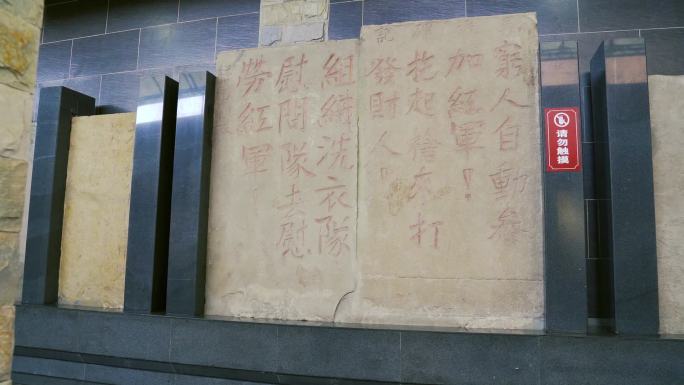 窮人自動參
加紅軍！
拖起槍來打
發財人！
組織洗衣隊
慰問隊去慰
勞紅軍！
请勿触摸